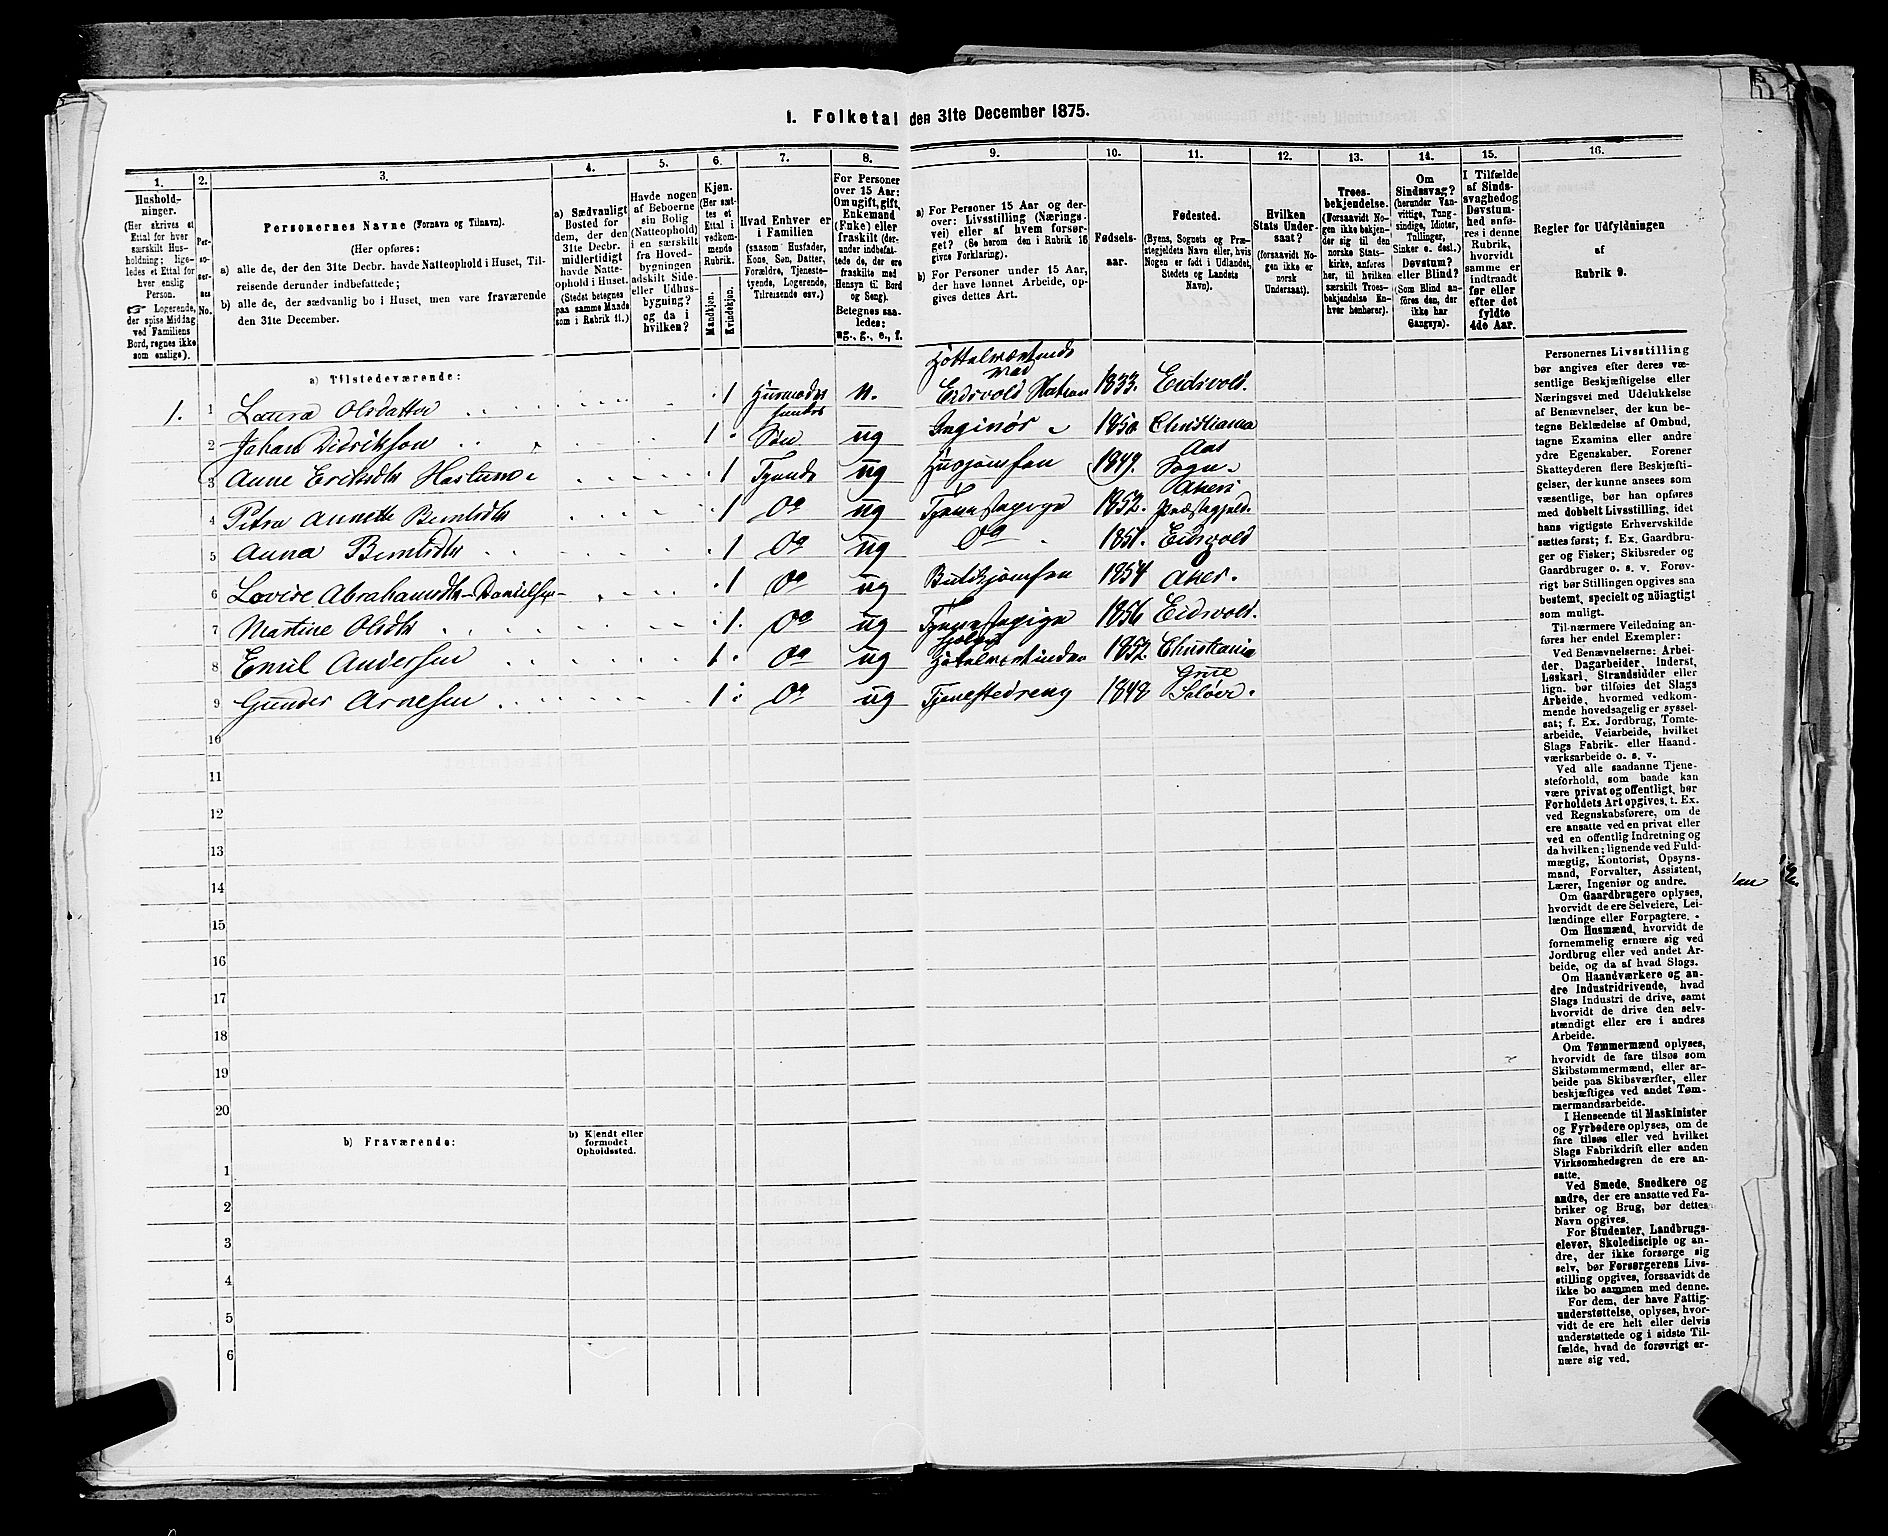 I. Folketal den 31te December 1875.
1. 2. 3. 4. 5. 6. 7. 8. 9. 10. 11. 12. 13. 14. 15. 16.
Husholdninger.
(Her skrives et Ettal for hver særskilt Husholdning; ligeledes et Ettal for hver enslig Person.
☞ Logerende, der spise Middag ved Familiens Bord, regnes ikke som enslige).
Personernes No.
Personernes Navne (Fornavn og Tilnavn).
(Her opføres:
a) alle de, der den 31te Decbr. havde Natteophold i Huset, Tilreisende derunder indbefattede;
b) alle de, der sædvanlig bo i Huset, men vare fraværende den 31te December.
a) Sædvanligt Bosted for dem, der den 31te Decbr. midlertidigt havde Natteophold i Huset. (Stedet betegnes paa samme Maade som i Rubrik 11.)
Havde nogen af Beboerne sin Bolig (Natteophold) i en særskilt fra Hovedbygningen adskilt Side- eller Udhusbygning? og da i hvilken?
Kjøn. (Her sættes et Ettal i vedkommende Rubrik.
Mandkjøn. Kvindekjøn.
Hvad Enhver er i Familien
(saasom Husfader, Kone, Søn, Datter, Forældre, Tjenestetyende, Logerende, Tilreisende osv.)
For Personer over 15 Aar: Om ugift, gift, Enkemand (Enke) eller fraskilt (derunder indbefattede de, der ere fraskilte med Hensyn til Bord og Seng). Betegnes saaledes: ug., g., e., f.
a) For Personer 15 Aar og derover: Livsstilling (Næringsvei) eller af hvem forsørget? (Se herom den i Rubrik 16 givne Forklaring).
b) For Personer under 15 Aar, der have lønnet Arbeide, opgives dettes Art.
Fødselsaar.
Fødested.
(Byens, Sognets og Præstegjeldets Navn eller, hvis Nogen er født i Udlandet, Stedets og Landets Navn).
Hvilken Stats Undersaat? (forsaavidt Nogen ikke er norsk Undersaat).
Troesbekjendelse. (Forsaavidt Nogen ikke bekjender sig til den norske Statskirke, anføres her, til hvilken særskilt Troesbekjendelse Enhver henhører).
Om Sindssvag? (herunder Vanvittige, Tungsindige, Idioter, Tullinger, Sinker o. desl.) Døvstum? eller Blind? (Som Blind anføres den, der ikke har Gangsyn).
I Tilfælde af Sindssvaghed og Døvstumhed anføres i denne Rubrik, hvorvidt samme er indtraadt før eller efter det fyldte 4de Aar.
Regler for Udfyldningen af Rubrik 9.
a) Tilstedeværende:
1. 1 Laura Olsdatter 1 Husmoder n. Høttelværtinde ved Eidsvold Station 1833. Eidsvold.
2 Johan Didriksen 1 Søn ug Inginør 1850 Christiania
3 Anne Eriksdtr Haslum 1 Tjende ug Husjomfru 1849. Aas Sogn
4 Petra Annette Berntsdtr 1 Do ug Tjenestepige 1852. Akers Præstegjeld.
5 Anna Berntsdtr 1 Do ug Do 1851. Eidsvold
6 Lovise Abrahamsdtr-Danielsen 1 Do ug Butikjomfru 1854 Aker.
7 Martine Olsdtr 1. Do ug Tjenestepige 1856 Eidsvold.
8 Emil Andersen 1 Do ug Høtelværtinden 1852. Christiania
9 Gunder Arnesen 1 Do ug Tjenestedreng 1848 Grue Soløer.
10
11
12
13
14
15
16
17
18
19
20
b) Fraværende:
b) Kjendt eller formodet Opholdssted.
1
2
3
4
5
6
Personernes Livsstilling
bør angives efter deres væ-
sentlige Beskjæftigelse eller
Næringsvei med Udelukkelse
af Benævnelser, der kun be-
tegne Beklædelse af Ombud,
tagne Examina eller andre
ydre Egenskaber. Forener
Skatteyderen flere Beskjæfti-
gelser, der kunne ansees som
væsentlige, bør han opføres
med dobbelt Livsstilling, idet
hans vigtigste Erhvervskilde
sættes først; f. Ex. Gaardbru-
ger og Fisker; Skibsreder og
Gaardbruger o. s. v. Forøv-
rigt bør Stillingen opgives saa
bestemt, specielt og nöiagtigt
som muligt.
Til nærmere Veiledning an-
føres her endel Exempler:
Ved Benævnelserne: Arbei-
der, Dagarbeider, Inderst,
Løskarl, Strandsidder eller
lign. bør tilføies det Slags
Arbeide, hvormed vedkom-
mende hovedsagelig er syssel-
sat; f. Ex. Jordbrug, Tomte-
arbeide, Veiarbeide, hvilket
Slags Fabrik- eller Haand-
værksarbeide o. s. v.
Ved alle saadanne Tjene-
steforhold, som baade kan
være privat og offentligt, bør
Forholdets Art opgives, t. Ex.
ved Regnskabsførere, om de
ere ansatte ved en privat eller
ved en offentlig Indretning og
da hvilken; lignende ved Fuld-
mægtig, Kontorist, Opsyns-
mand, Forvalter, Assistent,
Lærer, Ingeniør og andre.
Om Gaardbrugere oplyses,
hvorvidt de ere Selveiere, Lei-
lændinge eller Forpagtere.
Om Husmænd, hvorvidt de
fornemmelig ernære sig ved
Jordbrug eller ved andet Ar-
beide, og da af hvad Slags.
Om Haandværkere og an-
dre Industridrivende, hvad
Slags Industri de drive, samt
hvorvidt de drive den selv-
stændigt eller ere i andres
Arbeide.
Om Tømmermænd oplyses,
hvorvidt de fare tilsøs som
Skibstømmermænd, eller ar-
beide paa Skibsværfter, eller
beskjæftiges ved andet Tøm-
mermandsarbeide.
I Henseende til Maskinister
og Fyrbødere oplyses, om de
fare tilsøs eller ved hvilket
Slags Fabrikdrift eller anden
Virksomhedsgren de ere an-
satte.
Ved Smede, Snedkere og
andre, der ere ansatte ved Fa-
briker og Brug, bør dettes
Navn opgives.
For Studenter, Landbrugs-
elever, Skoledisciple og an-
dre, der ikke forsørge sig
selv, bør Forsørgerens Livs-
stilling opgives, forsaavidt de
ikke bo sammen med denne.
For dem, der have Fattig-
understøttelse, oplyses, hvor-
vidt de ere helt eller delvis
understøttede og i sidste Til-
fælde, hvad de forøvrigt er-
nære sig ved.